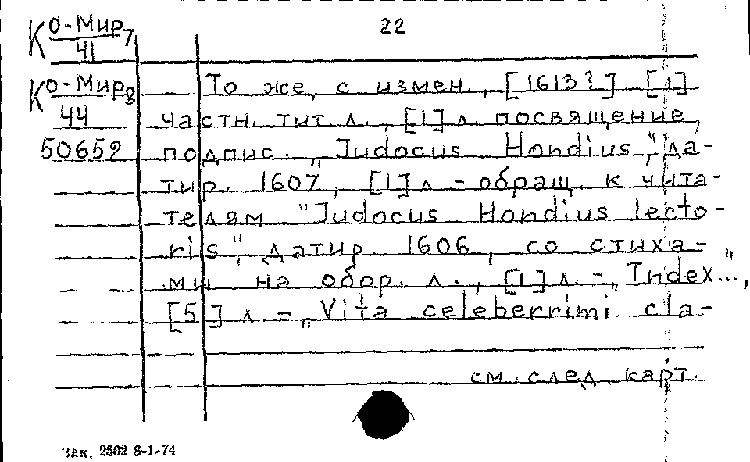 22
К О-Мир7
41
К О-Мир8
44
50652
То же, с измен., [1613?] [1]
частн. тит. л., [1] л. посвящение,
подпис. „Judocus Hondius“, да-
тир. 1607, [1] л. - обращ. к чита-
телям "Judocus Hondius lecto-
ris", датир. 1606, со стиха-
ми на обор. л., [1] л. - „Index...",
[5] л. - „Vita celeberrimi cla-
см. след. карт.
Зак. 2502 8-1-74